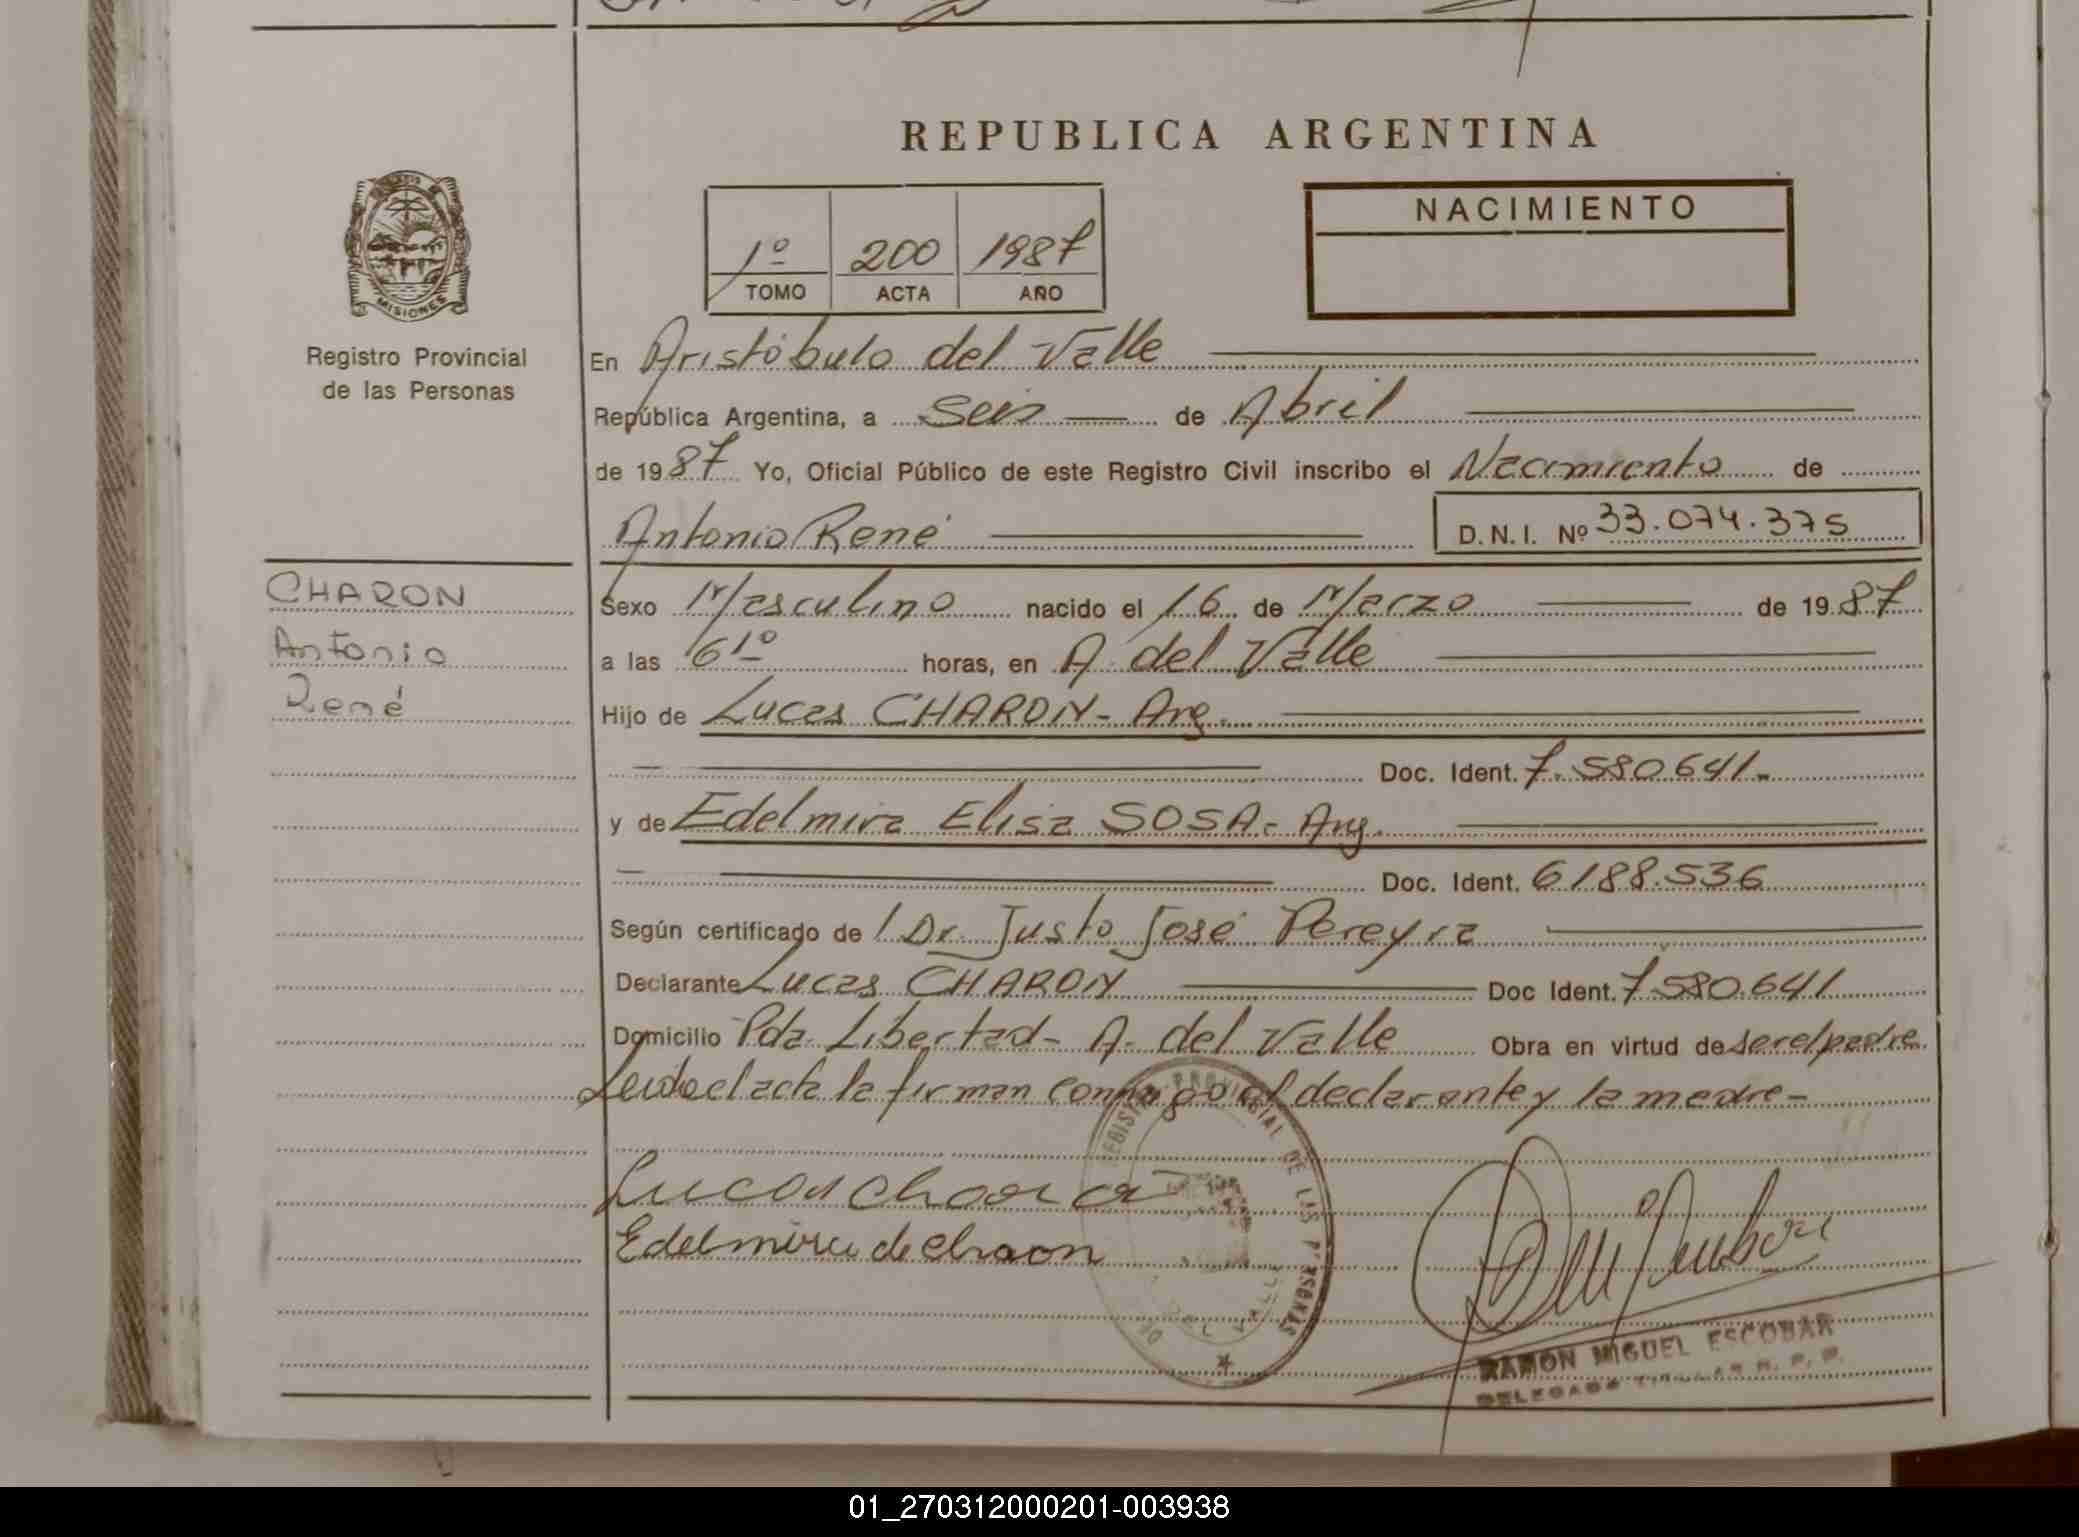 REPUBLICA ARGENTINA
MISIONES
Registro Provincial
de las Personas
1º 200 1987
TOMO ACTA AÑO
NACIMIENTO
En Aristóbulo del Valle
República Argentina, a seis de Abril
de 1987 Yo, Oficial Público de este Registro Civil inscribo el Nacimiento de
Antonio René D.N.I. Nº 33.074.375
CHARON
Antonio
René
Sexo Masculino nacido el 16 de Marzo de 1987
a las 6 1º horas, en A. del Valle
Hijo de Lucas CHARON - Arg.
Doc. Ident. 7.580.641.
y de Edelmira Elisa SOSA - Arg.
Doc. Ident. 6188.536
Según certificado de Dr. Justo José Pereyra
Declarante Lucas CHARON Doc Ident. 7.580.641
Domicilio Pda. Libertad - A. del Valle Obra en virtud de ser el padre
Leida el acta la firman conmigo el declarante y la madre -
REGISTRO PROVINCIAL DE LAS PERSONAS
DEL VALLE
Lucas
Edelmira de charon
RAMON MIGUEL ESCOBAR
DELEGADO TITULAR R. P. P.
01_270312000201-003938